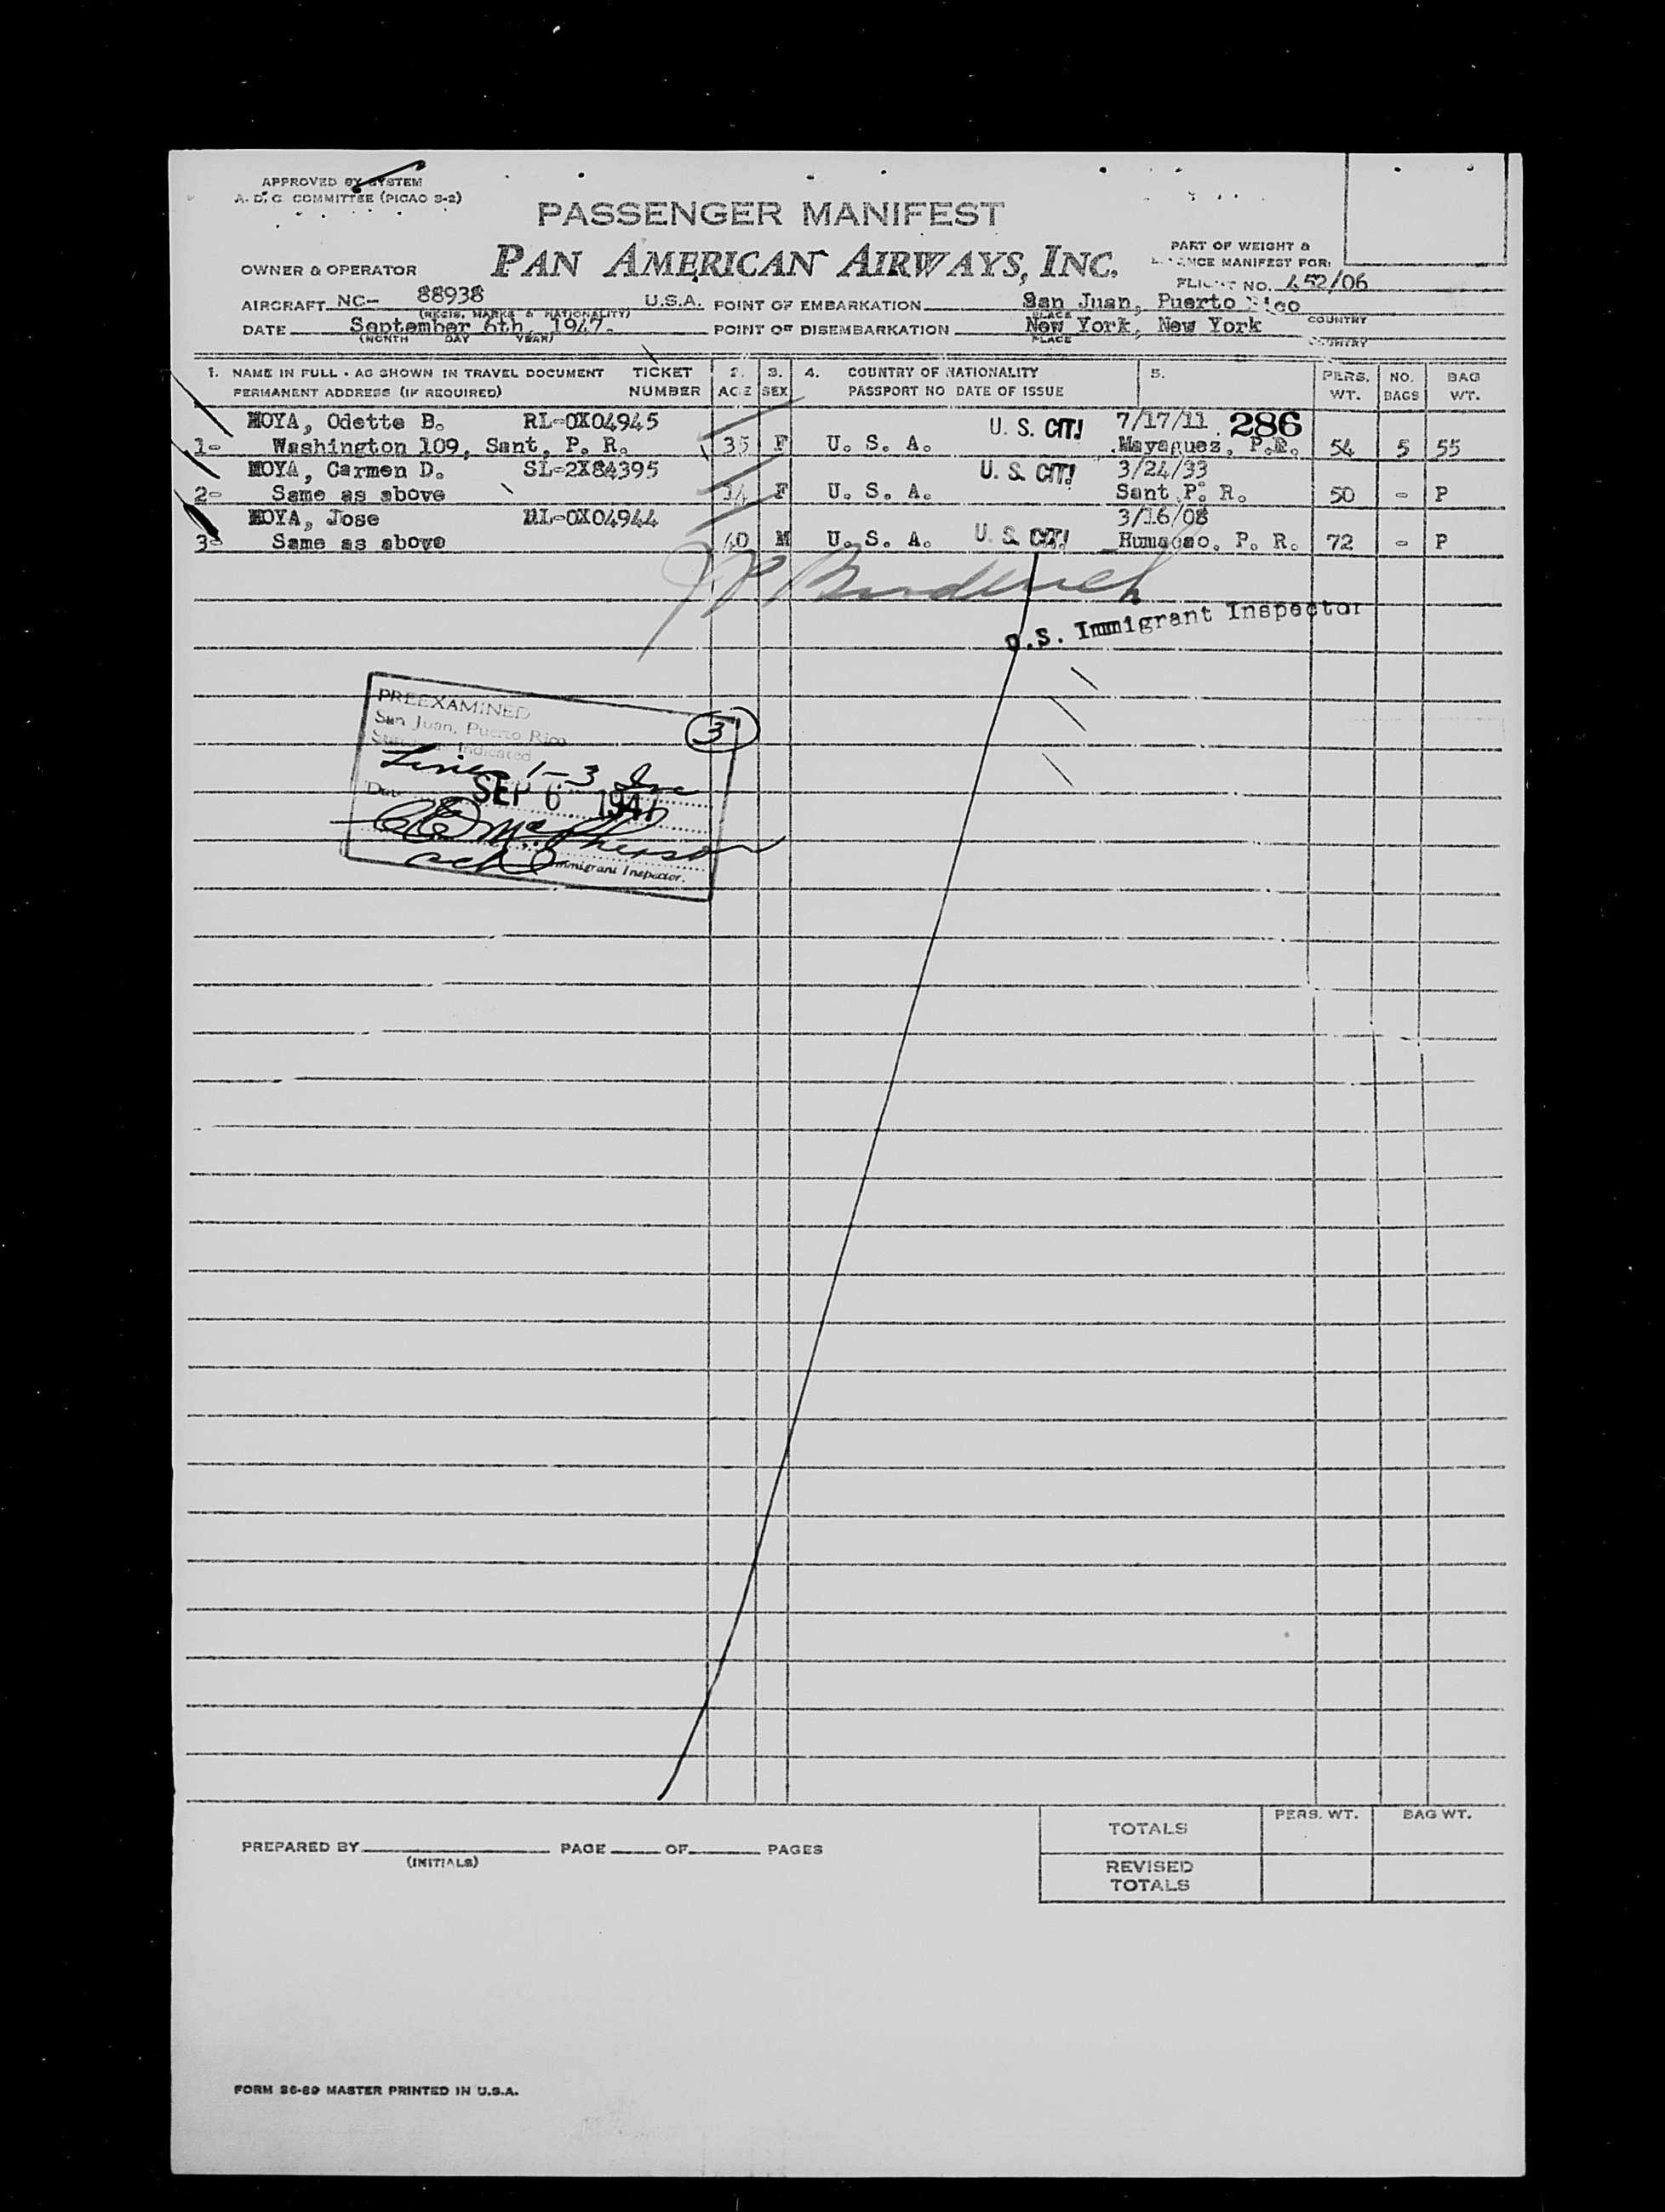 APPROVED BY SYSTEM
A. D. C COMMITTEE (PICAO S-2)
PASSENGER MANIFEST
PAN AMERICAN AIRWAYS, INC.
PART OF WEIGHT &
MANIFEST FOR:
OWNER & OPERATOR
FLIGHT NO. 452/06
AIRCRAFT NC- 88938 U.S.A. POINT OF EMBARKATION San Juan, Puerto Rico
(REGIS. MARKS & NATIONALITY) PLACE COUNTRY
DATE September 6th, 1947. POINT OF DISEMBARKATION New York, New York
(MONTH DAY YEAR) PLACE COUNTRY
1. NAME IN FULL - AS SHOWN IN TRAVEL DOCUMENT TICKET 2. 3. 4. COUNTRY OF NATIONALITY 5. PERS. NO. BAG
PERMANENT ADDRESS (IF REQUIRED) NUMBER AGE SEX PASSPORT NO DATE OF ISSUE WT. BAGS WT.
MOYA, Odette B. RL-0X04945 U. S. CIT! 7/17/11 286
1- Washington 109, Sant, P. R. 35 F U. S. A. Mayaguez, P.R. 54 5 55
MOYA, Carmen D. SL-2X84395 U. S. CIT! 3/24/33
2- Same as above 14 F U. S. A. Sant P. R. 50 - P
MOYA, Jose RL-0X04944 3/16/08
3- Same as above 40 M U. S. A. U. S. CIT! Humacao, P. R. 72 - P
U.S. Immigrant Inspector
PREEXAMINED
San Juan, Puerto Rico
Indicated
3
Lines 1-3 Inc
Date SEP 6 1947
McPherson
Immigrant Inspector.
PERS. WT. BAG WT.
TOTALS
PREPARED BY PAGE OF PAGES
(INITIALS)
REVISED
TOTALS
FORM 36-69 MASTER PRINTED IN U.S.A.